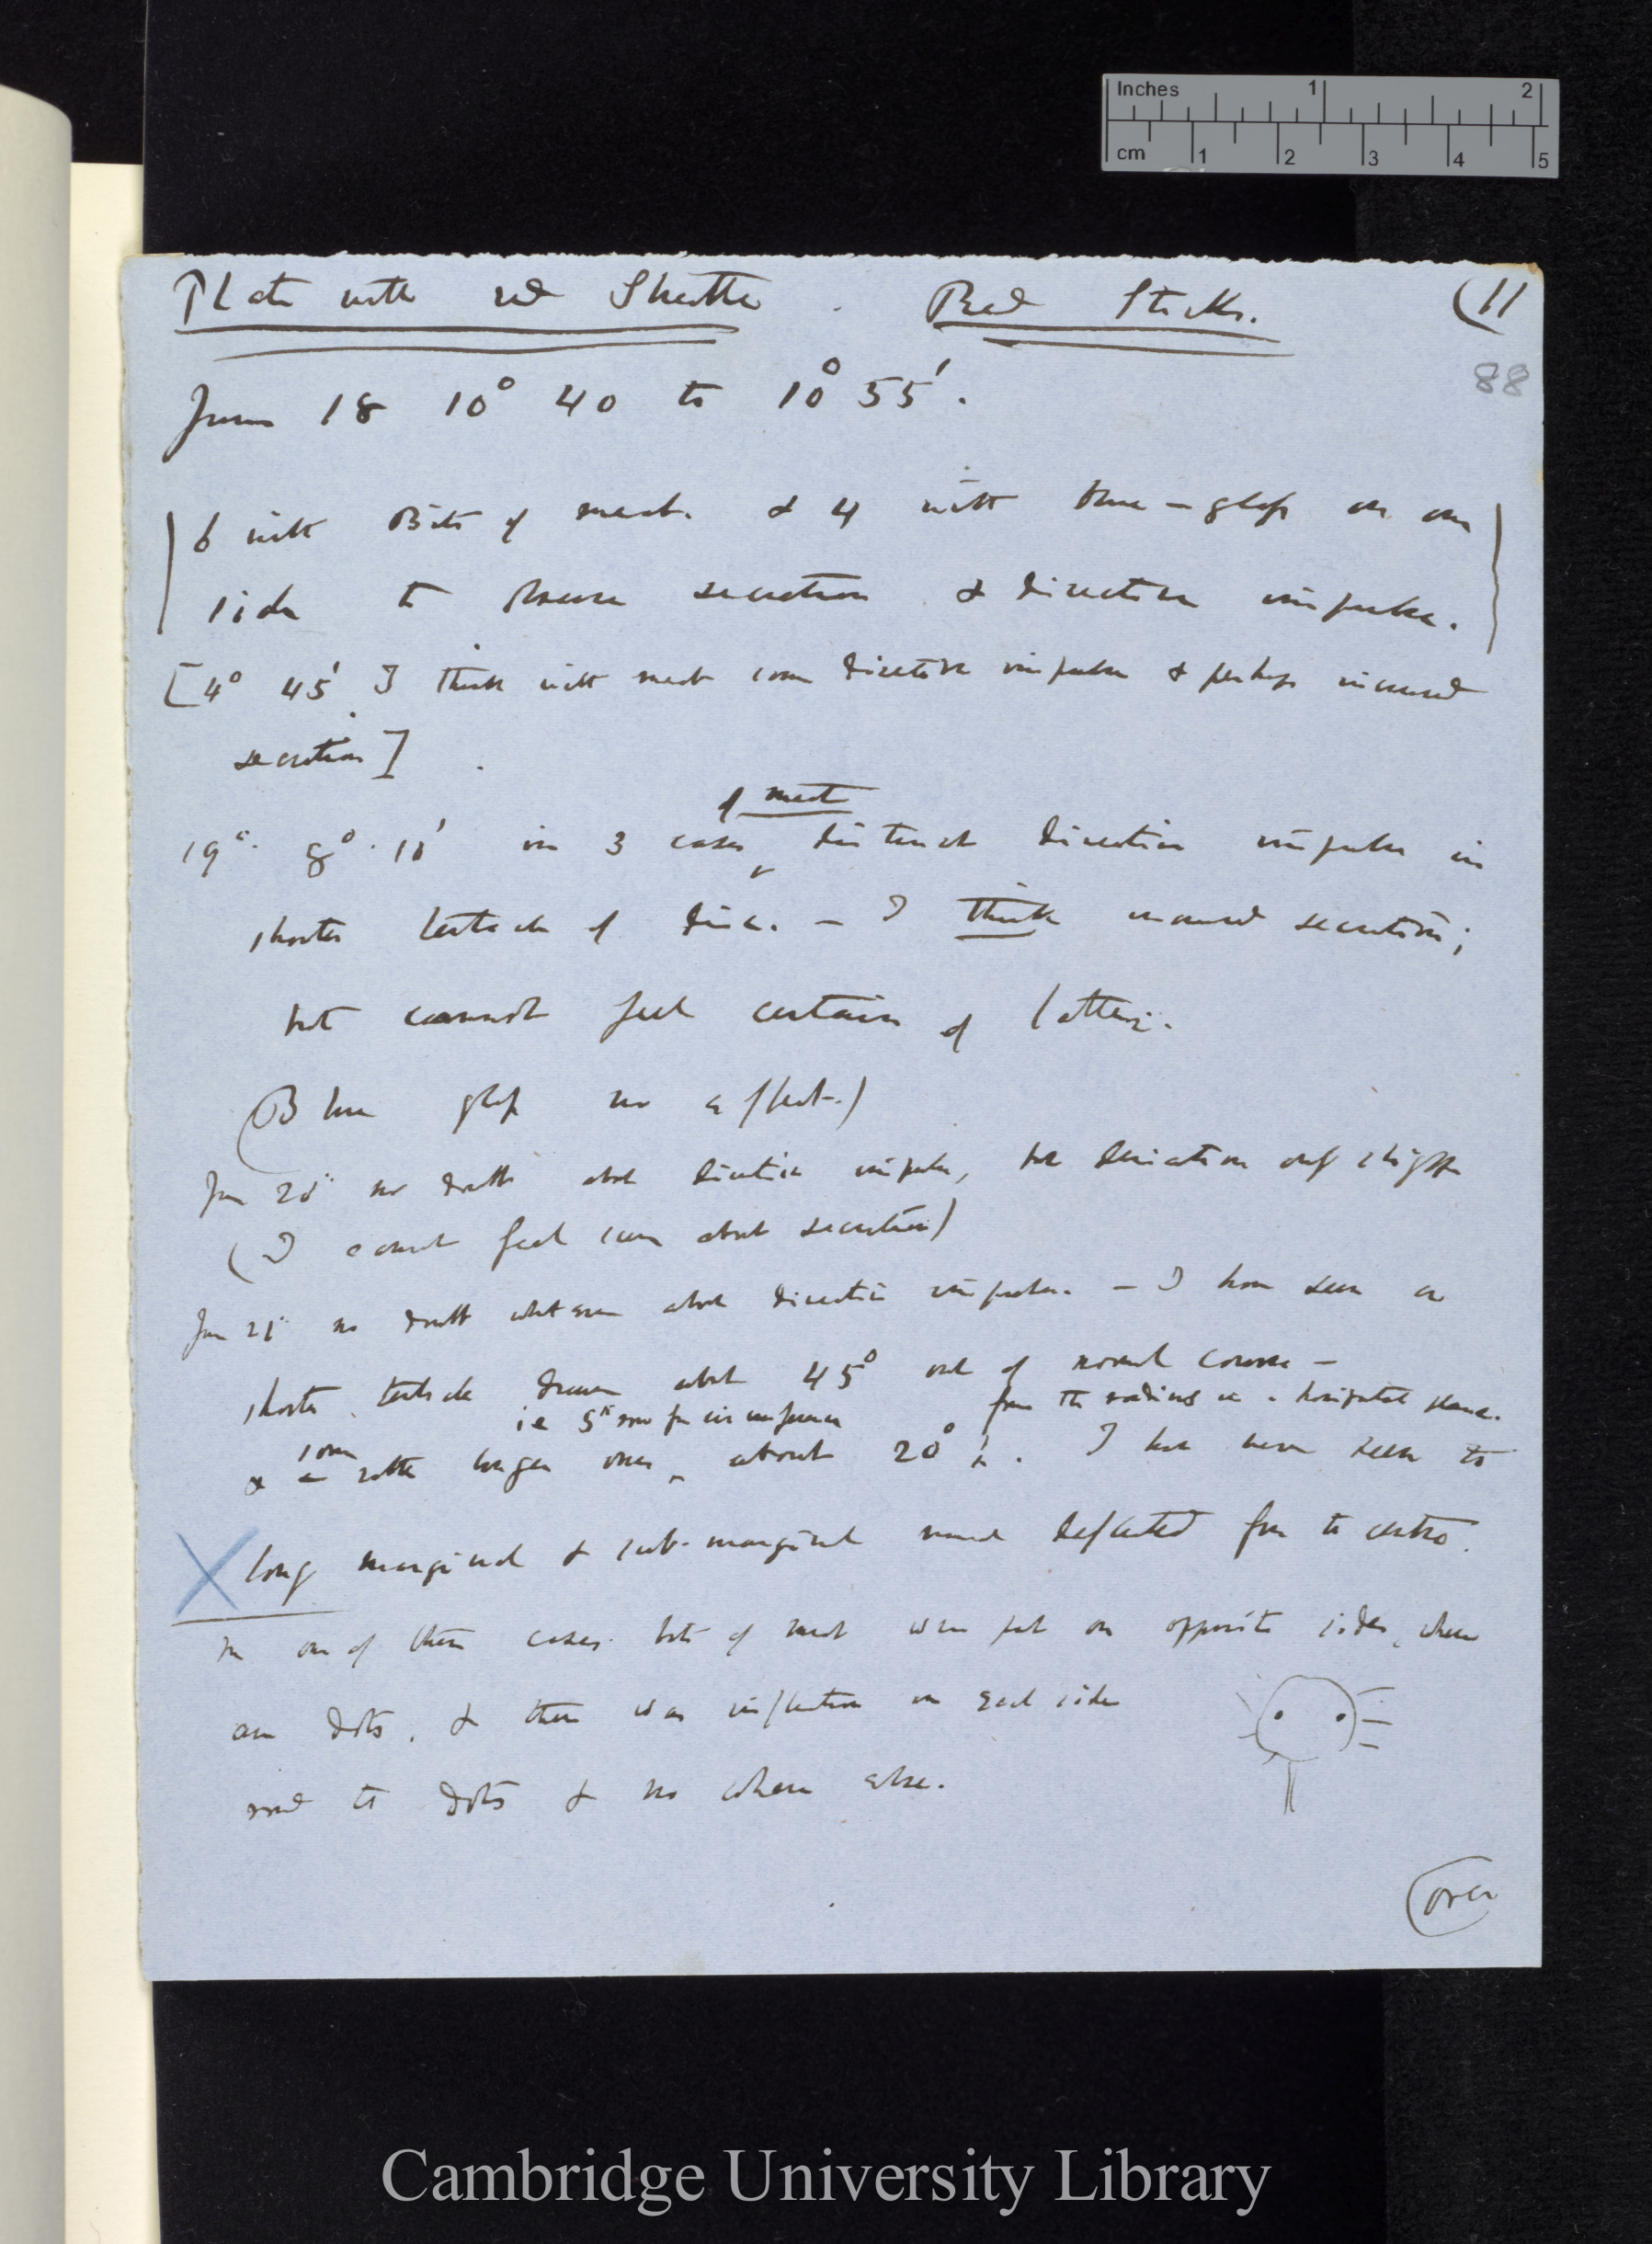 Inches 1 2
cm 1 2 3 4 5
Plate with red Sticks. Red Sticks. (11
88
June 18 10° 40 to 10° 55'.
6 with Bits of meat. & 4 with blue-glass on one
side to observe secretion & direction impulse.
[4° 45' I think with meat some direction impulse & perhaps increased
secretion]
of meat
19th. 8°. 10' in 3 cases distinct direction impulse in
shorter tentacle of disc. — I think increased secretion;
but cannot feel certain of latter.
(Blue glass no effect.)
June 20 no doubt about direction impulse, but deviation only slight
(I cannot feel sure about secretion)
June 21 no doubt whatever about direction impulse. — I have seen a
shorter tentacle drawn about 45° out of normal course —
ie 5th row from circumference from the radius in a horizontal plane.
& some rather longer ones about 20°. I have never seen the
X long marginal & sub-marginal deflected from the centre.
In one of these cases bits of meat were put on opposite sides, where
are dots, & there was inflection on each side
next to dots & no where else.
(over
Cambridge University Library